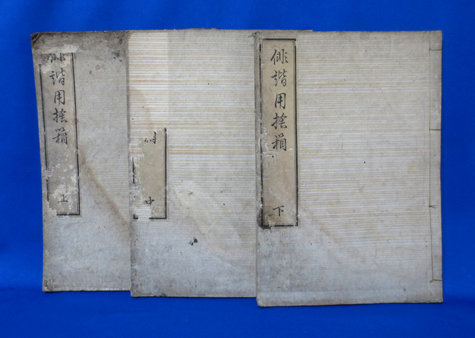 俳諧用捨箱
上
中
俳諧用捨箱
下